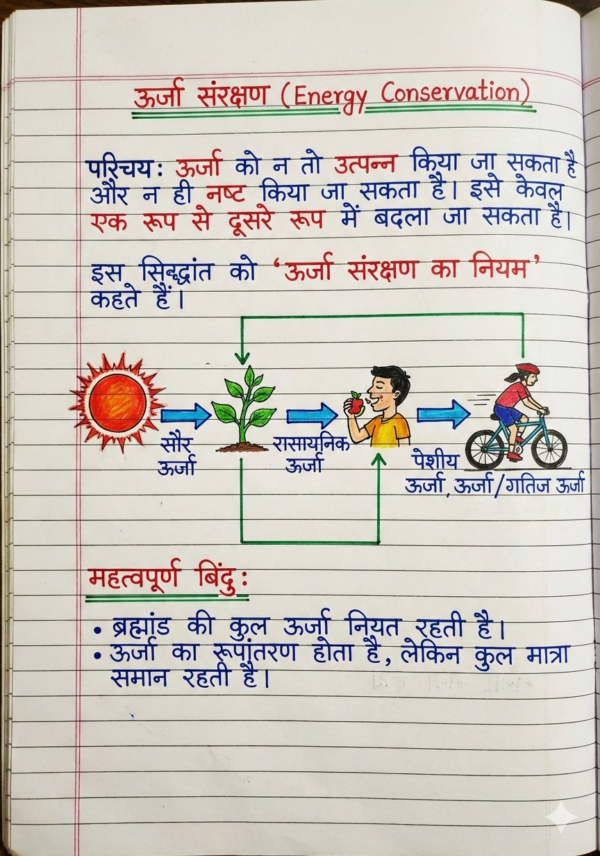 ऊर्जा संरक्षण (Energy Conservation)
परिचय: ऊर्जा को न तो उत्पन्न किया जा सकता है
और न ही नष्ट किया जा सकता है। इसे केवल
एक रूप से दूसरे रूप में बदला जा सकता है।
इस सिद्धांत को ‘ऊर्जा संरक्षण का नियम’
कहते हैं।
सौर
ऊर्जा
रासायनिक
ऊर्जा
पेशीय
ऊर्जा, ऊर्जा/गतिज ऊर्जा
महत्वपूर्ण बिंदु:
• ब्रह्मांड की कुल ऊर्जा नियत रहती है।
• ऊर्जा का रूपांतरण होता है, लेकिन कुल मात्रा
समान रहती है।